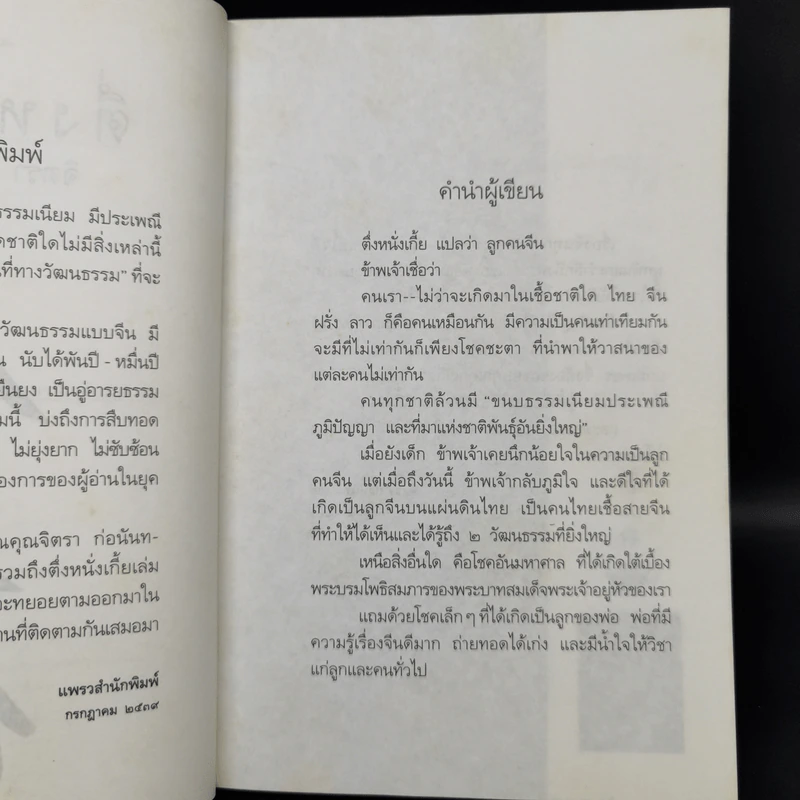 พิมพ์
ธรรมเนียม มีประเพณี
ชาติใดไม่มีสิ่งเหล่านี้
ที่ทางวัฒนธรรม" ที่จะ
วัฒนธรรมแบบจีน มี
นับได้พันปี - หมื่นปี
ยืนยง เป็นอู่อารยธรรม
นี้ บ่งถึงการสืบทอด
ไม่ยุ่งยาก ไม่ซับซ้อน
องการของผู้อ่านในยุค
คุณจิตรา ก่อนันท-
รวมถึงตึ่งหนั่งเกี้ยเล่ม
จะทยอยตามออกมาใน
านที่ติดตามกันเสมอมา
แพรวสำนักพิมพ์
กรกฎาคม ๒๕๓๙
คำนำผู้เขียน
ตึ่งหนั่งเกี้ย แปลว่า ลูกคนจีน
ข้าพเจ้าเชื่อว่า
คนเรา--ไม่ว่าจะเกิดมาในเชื้อชาติใด ไทย จีน
ฝรั่ง ลาว ก็คือคนเหมือนกัน มีความเป็นคนเท่าเทียมกัน
จะมีที่ไม่เท่ากันก็เพียงโชคชะตา ที่นำพาให้วาสนาของ
แต่ละคนไม่เท่ากัน
คนทุกชาติล้วนมี "ขนบธรรมเนียมประเพณี
ภูมิปัญญา และที่มาแห่งชาติพันธุ์อันยิ่งใหญ่"
เมื่อยังเด็ก ข้าพเจ้าเคยนึกน้อยใจในความเป็นลูก
คนจีน แต่เมื่อถึงวันนี้ ข้าพเจ้ากลับภูมิใจ และดีใจที่ได้
เกิดเป็นลูกจีนบนแผ่นดินไทย เป็นคนไทยเชื้อสายจีน
ที่ทำให้ได้เห็นและได้รู้ถึง ๒ วัฒนธรรมที่ยิ่งใหญ่
เหนือสิ่งอื่นใด คือโชคอันมหาศาล ที่ได้เกิดใต้เบื้อง
พระบรมโพธิสมภารของพระบาทสมเด็จพระเจ้าอยู่หัวของเรา
แถมด้วยโชคเล็กๆ ที่ได้เกิดเป็นลูกของพ่อ พ่อที่มี
ความรู้เรื่องจีนดีมาก ถ่ายทอดได้เก่ง และมีน้ำใจให้วิชา
แก่ลูกและคนทั่วไป